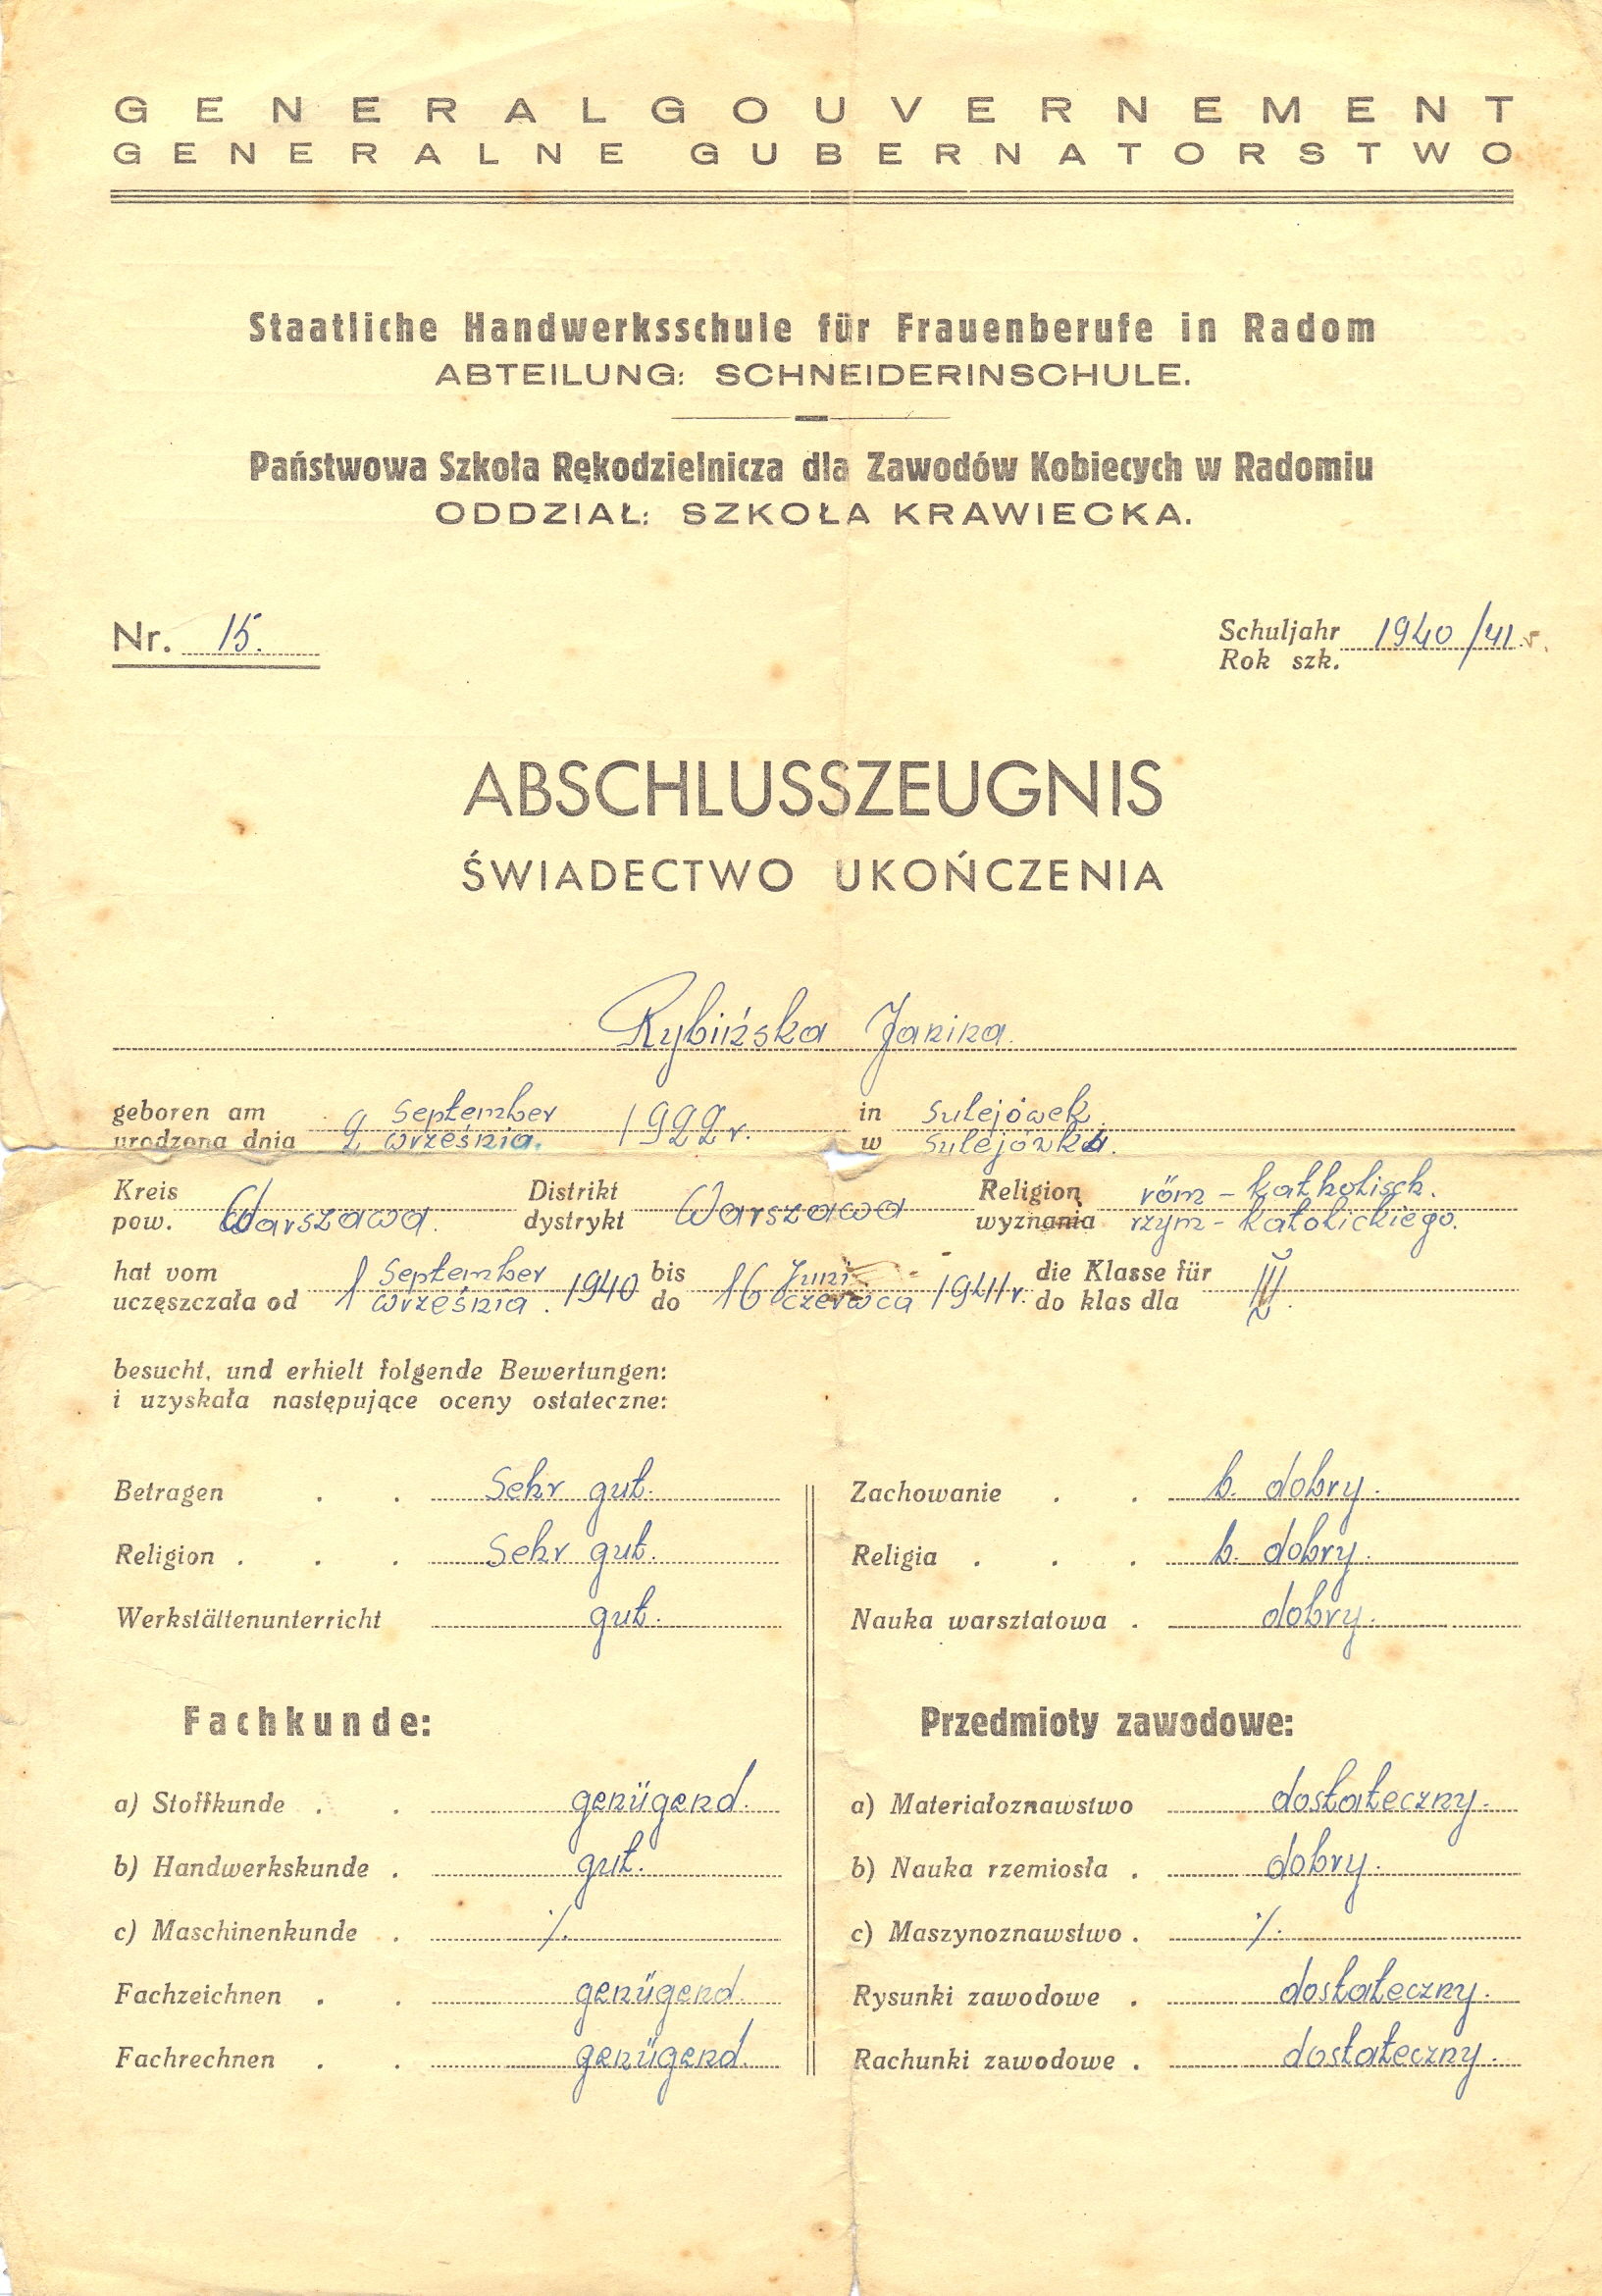 GENERALGOUVERNEMENT
GENERALNE GUBERNATORSTWO
Staatliche Handwerksschule für Frauenberufe in Radom
ABTEILUNG: SCHNEIDERINSCHULE.
Państwowa Szkoła Rękodzielnicza dla Zawodów Kobiecych w Radomiu
ODDZIAŁ: SZKOŁA KRAWIECKA.
Nr. 15.
Schuljahr 1940/41 r.
Rok szk.
ABSCHLUSSZEUGNIS
ŚWIADECTWO UKOŃCZENIA
Rybińska Janina.
geboren am September in Sulejówek.
urodzona dnia 2 września. 1922 r. w Sulejówku.
Kreis Distrikt Religion röm-katholisch.
pow. Warszawa. dystrykt Warszawa wyznania rzym-katolickiego.
hat vom September bis Juni die Klasse für
uczęszczała od 1 września. 1940 do 16 czerwca 1941 r. do klas dla III.
besucht, und erhielt folgende Bewertungen:
i uzyskała następujące oceny ostateczne:
Betragen . . Sehr gut. Zachowanie . . b. dobry.
Religion . . . Sehr gut. Religia . . . b. dobry.
Werkstättenunterricht gut. Nauka warsztatowa . dobry.
Fachkunde: Przedmioty zawodowe:
a) Stoffkunde . . genügend. a) Materiałoznawstwo dostateczny.
b) Handwerkskunde . gut. b) Nauka rzemiosła . dobry.
c) Maschinenkunde . ·/. c) Maszynoznawstwo . ·/.
Fachzeichnen . . genügend. Rysunki zawodowe . dostateczny.
Fachrechnen . . genügend. Rachunki zawodowe . dostateczny.